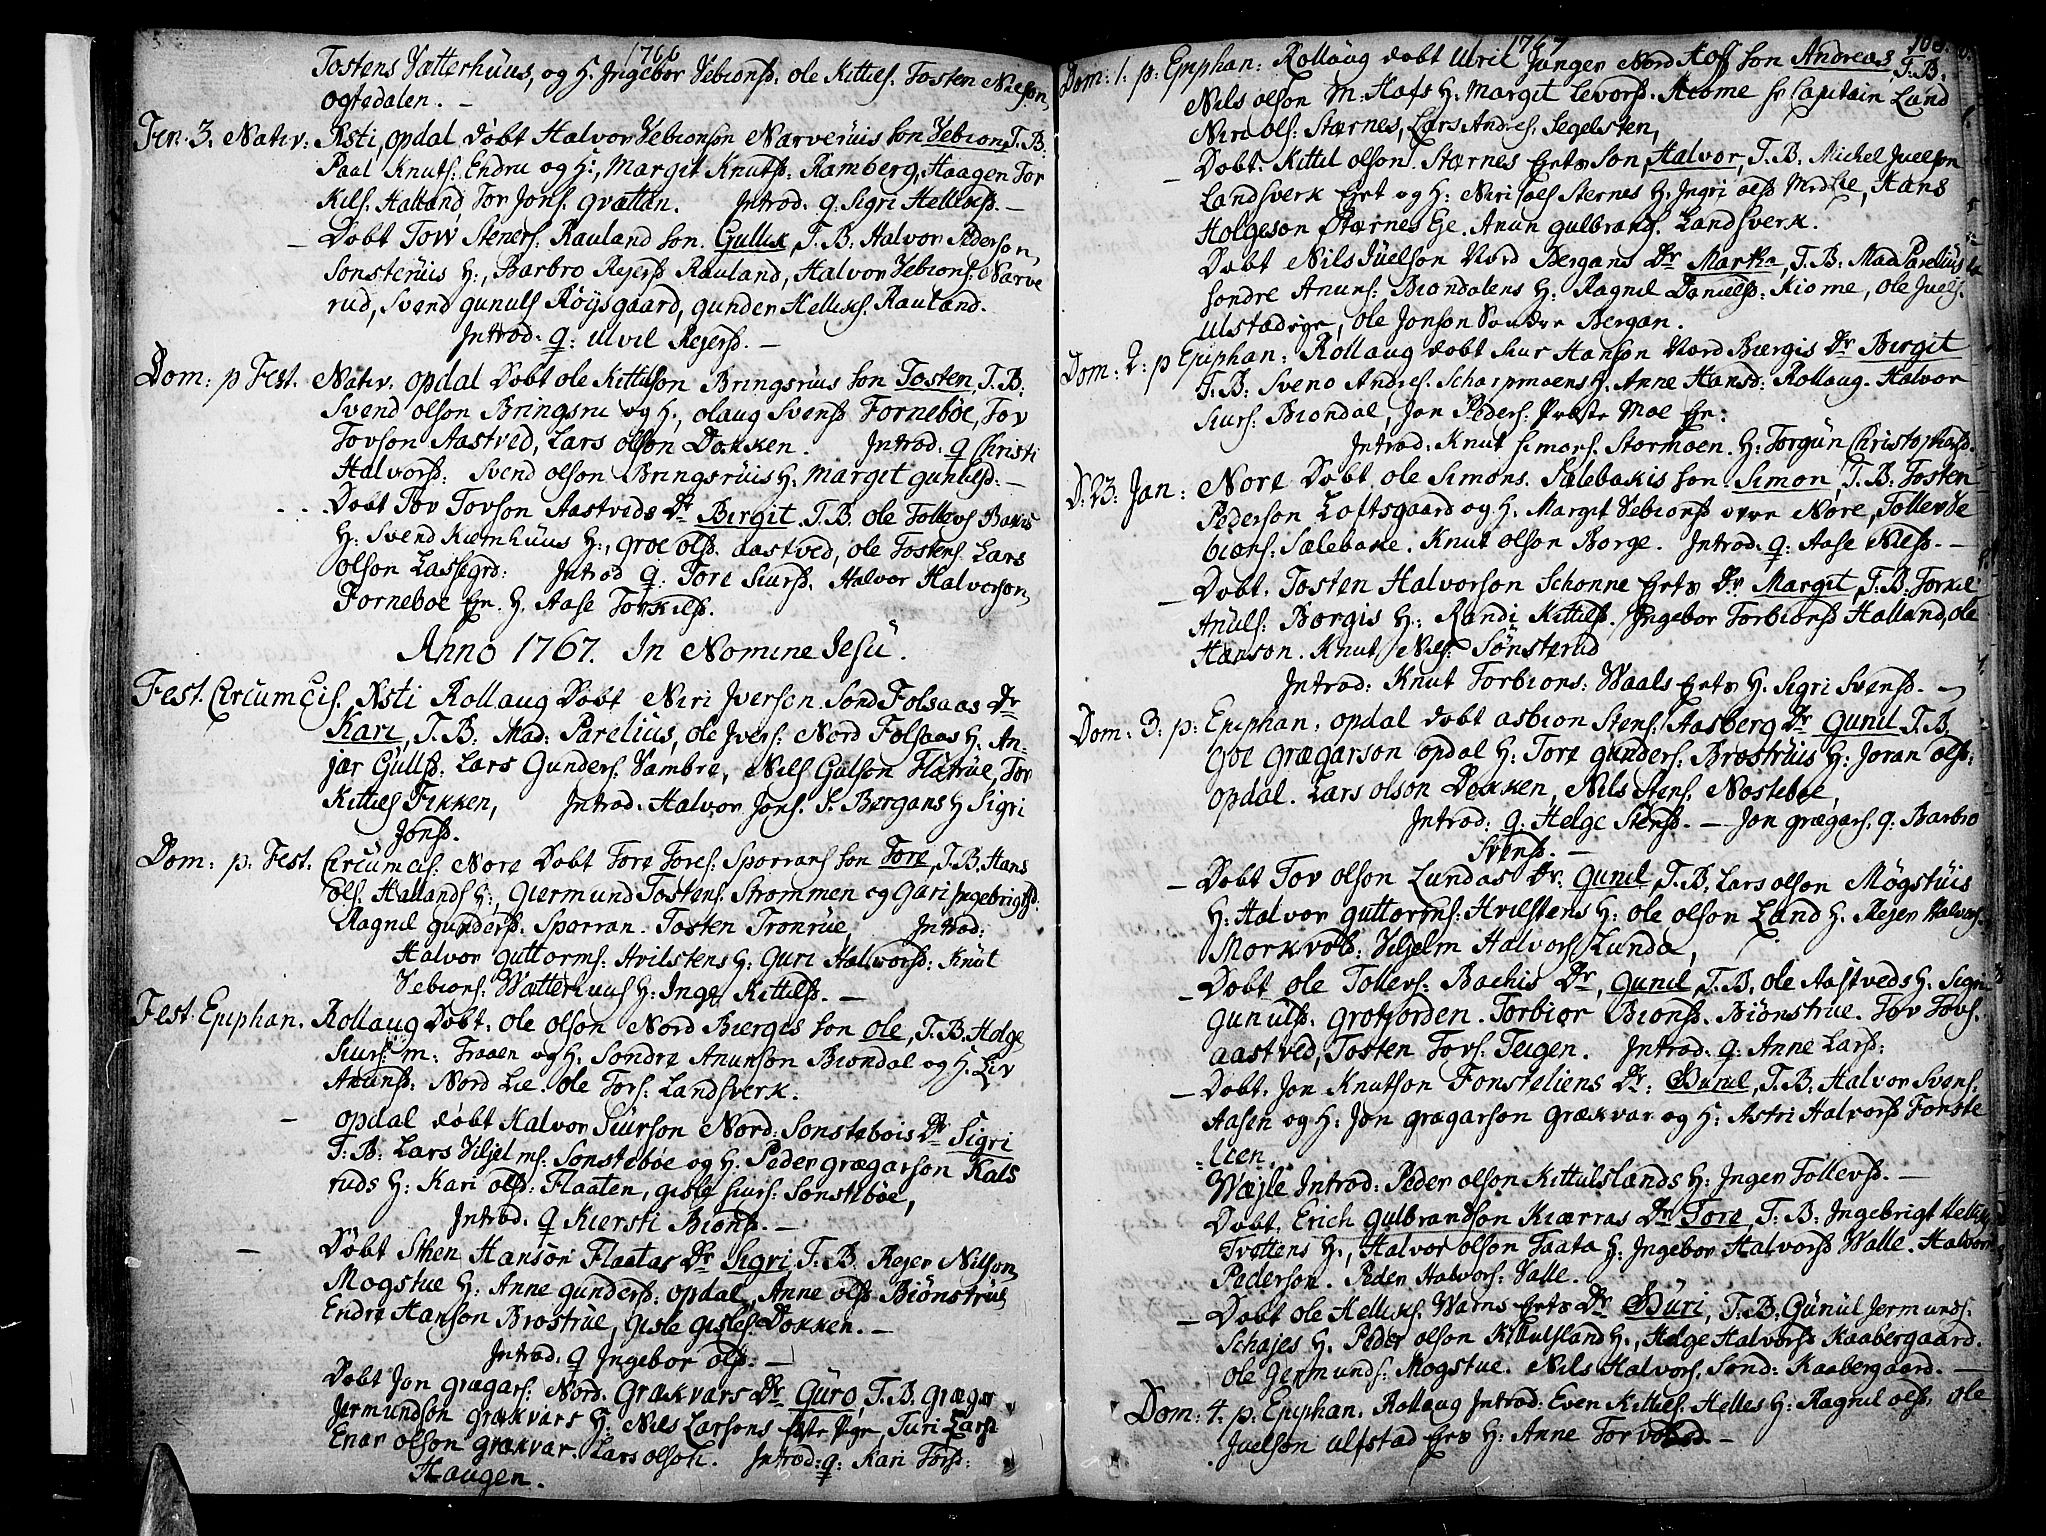 1766
Tostens Vætterhuus, og H. Ingebor Vebionsd: ole Kittels. Tosten Nielson
ogtedalen. –
Fer. 3. Nativ: Asti, opdal Døbt Halvor Vebionson Narveruis son Vebion, T.B:
Paal Knuts: Endru og H:, Margit Knutsd: Ramberg, Haagen Tor
Kils. Halland, Tor Jons. Grættan. Introd: q: Sigri Helliksd. –
– Døbt Tow Steners. Rauland son. Gullik, T.B: Halvor Pederson,
Sonsteruis H:, Barbro Rejersd Rauland, Halvor Vebions: Narve
rud, Svend Gunuls Röysgaard, Gunder Helliks. Rauland.
Introd: q: Ulvil Rejersd. –
Dom: p Fest. Nativ. Opdal Døbt ole Kittilson Bringsruis son Tosten, T.B:
Svend olson Bringsru og H:, olaug Svensd Forneböe, Tov
Tovson Aastved, Lars olson Dokken. Introd: q Christi
Halvorsd: Svend olson Bringsruis H: Margit Gunulsd: –
- - Døbt Tov Tovson Aastveds Dr Birgit. T.B. ole Tollevs Bakis
H: Svend Kiemhuus H:, Groe olsd. Aastved, ole Tostens. Lars
olson Lassegrd: Introd q: Tore Siursd. Halvor Halvorson,
Forneboe Eje. H. Aase Torkilsd.
Anno 1767. In Nomine Jesu.
Fest. Circumcis. Asti Rollaug Døbt Niri Iverson Sond Folsaas Dr
Kari, T.B. Mad: Parelius, ole Ivers: Nord Folsaas H: An-
jar Gullsd: Lars Gunders. Vambre, Nils Gulson Flatrue, Tov
Kittels Fikken, Introd: Halvor Jons. S. Bergans H Sigri
Jonsd.
Dom: p: Fest. Circumcis: Nore Døbt Tore Tores: Sporrans son Tore, T.B. Hans
ols: Hallands H:, Giermund Tostens. Strommen og Guri Ingebrigtsd.
Ragnil Gundersd. Sporran. Tosten Tronrue, Introd:
Halvor Guttorms: Hvilstens H: Guri Halvorsd: Knut
Vebions: Vætterhuus H: Inge Kittilsd. –
Fest: Epiphan. Rollaug Døbt: ole olson Nord Biergis son ole, T.B. Helge
Siurs: m: Traaen og H: Sondre Anunson Biondal og H. Liv
Anunsd: Nord Lie. ole Tors. Landsverk.
– opdal døbt Halvor Siurson Nord: Sonstebois Dr Sigri
T.B: Lars Viljelms: Sonsteböe og H. Peder Grægarson Kals
ruds H: Kari olsd: Flaaten, Gisle Siurs: Sonsteböe,
Introd: q Kiersti Bionsd. –
– Døbt Sthen Hanson Flaatas Dr Sigri T.B. Rejer Nilson,
Mogstue H: Anne Gundersd: opdal, Anne olsd Biönstrue
Endre Hanson Brostrue, Gisle Gisles. Dokken. –
Introd: q Ingebor olsd. –
Døbt Jon Grægars: Nord. Grækvars Dr Guro, T.B. Græger
Jermundson Grækvars H:, Nils Larsons Eje, Turi Larsd
Enar olson Grækvar. Lars olson. Introd: q: Kari Torsd:
Haugen.
1767
108.
Dom: 1. p: Epiphan: Rollaug døbt Ulril Junger Nord Hofs son Andreas T.B.
Nils olson m: Hofs H: Margit Levorsd. Kiome Sr Capitain Land
Niri ols: Stærnes, Lars Andres. Segelsten,
– Døbt. Kittil olson. Stærnes Ejets son, Halvor, T.B: Michel Juelson
Landsverk Ejet og H: Niri ols Sternes H: Ingri olsd Medlie, Hans
Holgeson Stærnes Eje. Anun Gulbrans. Landsverk.
Døbt Nils Juelson Nord Bergans Dr Martha, T.B: Mad Parelius
Sondre Anuns: Biondalens H: Ragnil Danielsd: Kiome, Ole Juels.
Ulstadeye, Ole Jonson Søndre Bergan.
Dom: 2: p Epiphan: Rollaug døbt Siur Hanson Nord Biergis Dr Birgit
T.B: Svend Andres. Scharpmoens H: Anne Hansd: Rollaug. Halvor
Siurs: Biondal, Jon Peders. Præste Moe Eje:
Introd: Knut Simons. Stormoen. H: Torgun Christophersd.
D. 23: Jan: Nore Døbt ole Simons. Sælebakis son. Simon, T.B: Tosten
Pederson Loftsgaard og H. Margit Vebionsd øvre Nore, Tollev Ve
bions: Sælebake. Knut olson Borge. Introd: q: Aase Nilsd. –
– Døbt. Tosten Halvorson Schonne Ejets Dr Margit, T.B: Torkil
Anuls: Borgis H: Randi Kittilsd. Ingebor Torbionsd Halland, ole
Hanson. Knut Nils: Sönsterud
Introd: Knut Torbions: Waals Ejets H: Sigri Svensd. –
Dom: 3: p: Epiphan: opdal døbt Asbion Stens: Aasberg Dr Gunil T.B.
Goe Grægarson opdal H: Tore Gunders: Brostruis H: Joran olsd:
opdal. Lars olson Dokken, Nils Stens. Nosteboe,
Introd: q: Helge Stensd. – Jon Grægars. q: Barbro
Svensd. –
– Døbt Tov olson Lundas Dr: Gunil, T.B: Lars olson Mogstuis
H: Halvor Guttorms: Hvilstens H: ole olson Land H. Rejer Halvors.
Morkvold: Viljelm Halvors Lunda,
– Døbt ole Tollevs: Bachis Dr, Gunil, T.B. ole Aastveds H: Sigri
Gunulsd: Grotjorden. Torbior Bionsd. Biönstrue. Tov Tovs.
Aastved, Tosten Tovs: Teigen. Introd: q: Anne Larsd:
– Døbt. Jon Knutson Fonsteliens Dr: Gunil, T.B: Halvor Svens.
Aasen og H: Jon Grægarson Grækvar og H: Astri Halvorsd Fonste
-lien.
Wæjle Introd: Peder olson Kittulslands H: Inger Tollevsd. –
Døbt. Erich Gulbrandson Kiærras Dr Tore, T.B: Ingebrigt Helliks
Trottens H:, Halvor olson Taata H: Ingebor Halvorsd Walle. Halvor
Pederson. Peder Halvors: Valle.
– Døbt ole Helliks: Warns Ejets Dr Guri, T.B: Gunul Jermunds.
Schajes H. Peder olson Kittulsland H:, Helge Halvorsd Kaabergaard.
ole Jermunds: Mogstue. Nils Halvors. Sønd: Kaabergaard. –
Dom: 4. p: Epiphan. Rollaug Introd: Even Kittils. Helles H: Ragnil olsd: ole
Juelson Ulfstad Ejes H: Anne Torvolsd –